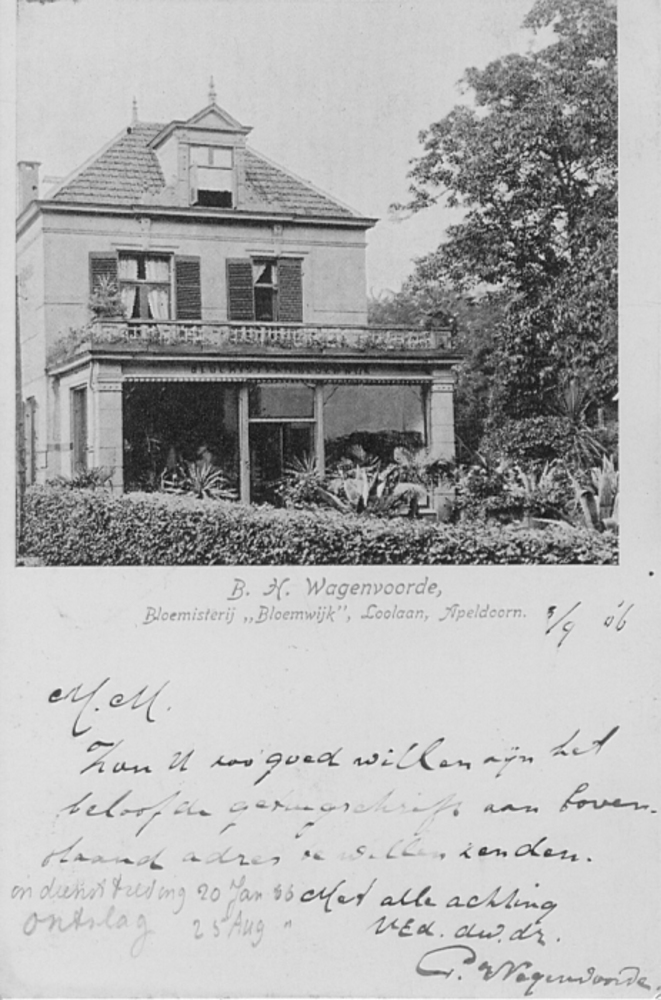 BLOEMISTERIJ BLOEMWIJK
B. H. Wagenvoorde,
Bloemisterij „Bloemwijk”, Loolaan, Apeldoorn.
/9 06
M. M.
Zou U zoo goed willen zijn het
beloofde getuigschrift aan boven-
staand adres te willen zenden.
in dienst treding 20 Jan
ontslag 25 Aug "
Met alle achting
UEd. dw. dr.
Wagenvoorde